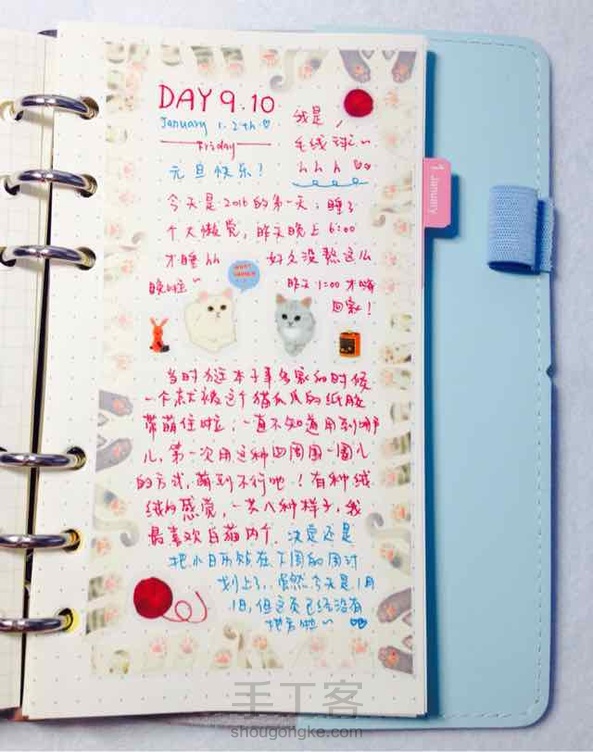 DAY 9.10
January 1.2th
Friday
我是
毛线球~
hhh
元旦快乐！
今天是2016的第一天；睡了
个大懒觉，昨天晚上6:00
才睡hh 好久没熬这么
晚啦~ 昨天1:00才嗨
回家！
1 January
当时逛本子享多家的时候
一个就被这个猫爪爪的纸胶
带萌住啦，一直不知道用到哪
儿，第一次用这种四周围一圈儿
的方式，萌到不行吧！有种绒
绒的感觉，一共八种样子，我
最喜欢白猫两个．决定还是
把小日历贴在下周的周计
划上了．虽然今天是1月
1日，但这页已经没有
地方啦~
手工客
shougongke.com